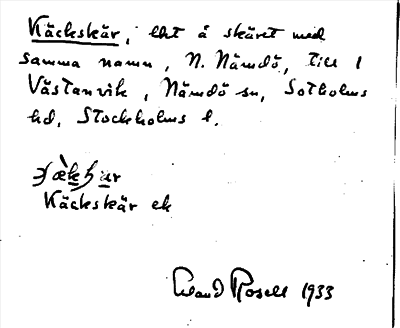 Käckskär, lht å skäret med
samma namn, N. Nämdö, till 1
Västanvik, Nämdö sn, Sotholms
hd, Stockholms l.
Käckskär ek
Rosell 1933